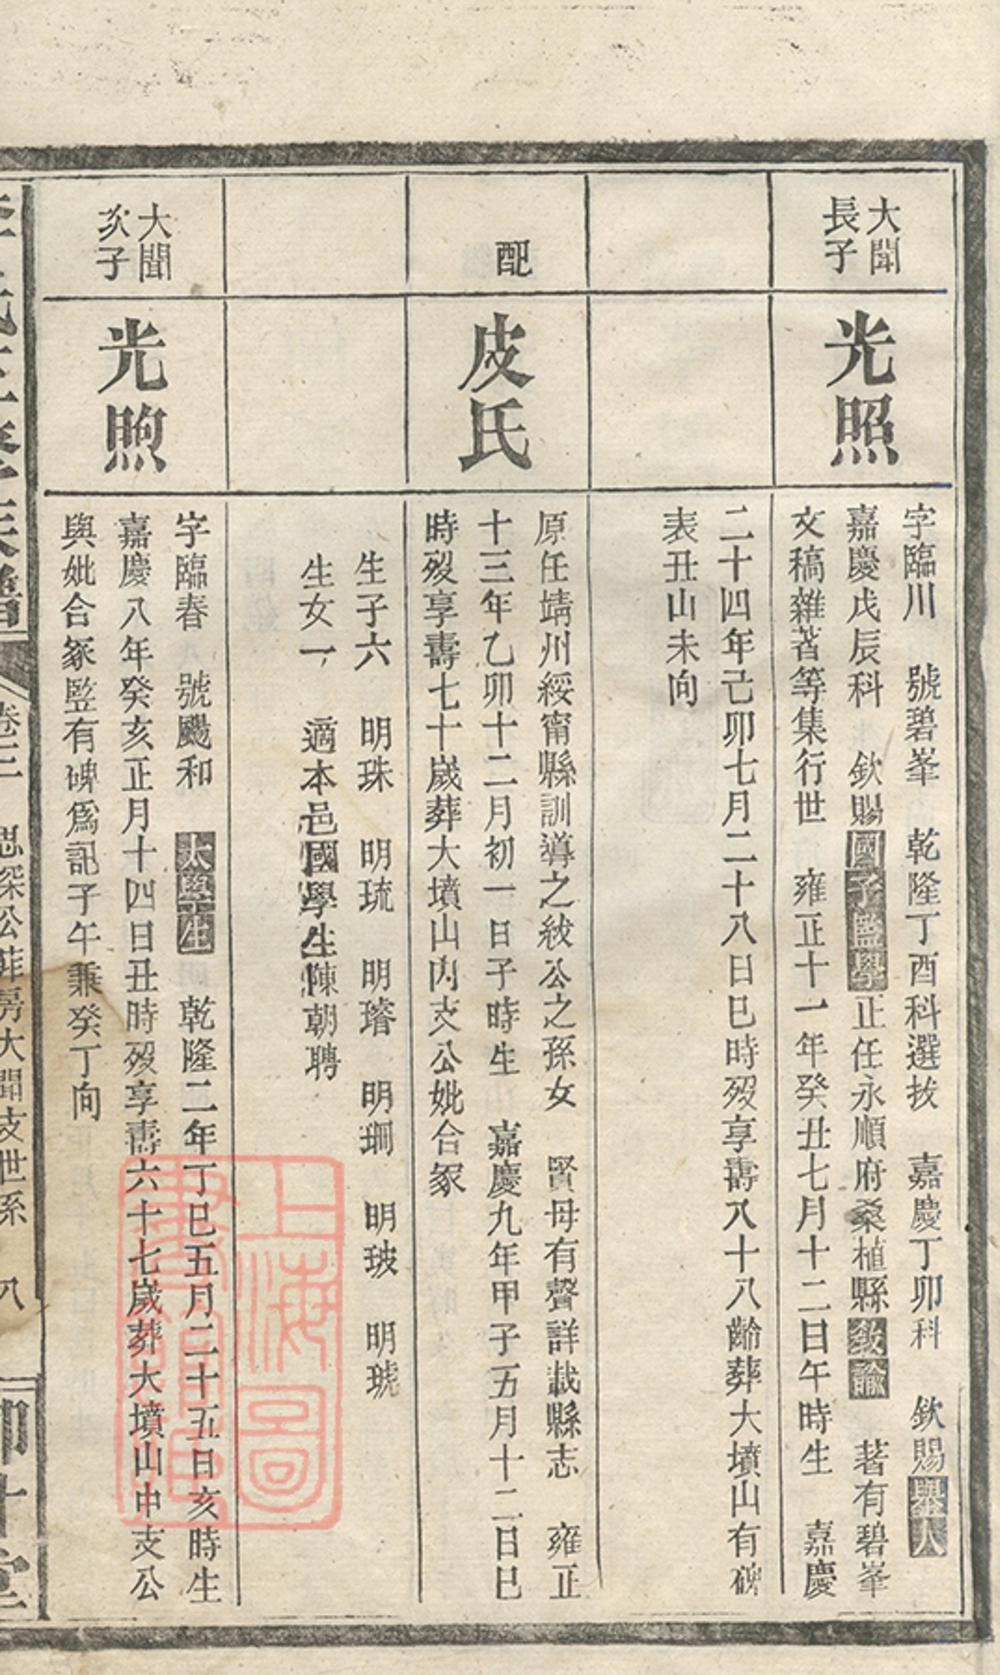 大聞
長子
光照
字臨川　號碧峯　乾隆丁酉科選拔　嘉慶丁卯科　欽賜舉人
嘉慶戊辰科　欽賜國子監學正任永順府桑植縣敎諭　著有碧峯
文稿雜著等集行世　雍正十一年癸丑七月十二日午時生　嘉慶
二十四年己卯七月二十八日巳時歿享壽八十八齡葬大墳山有碑
表丑山未向
配
皮氏
原任靖州綏甯縣訓導之紱公之孫女　賢母有聲詳載縣志　雍正
十三年乙卯十二月初一日子時生　嘉慶九年甲子五月十二日巳
時歿享壽七十歲葬大墳山內支公妣合冢
生子六　明珠　明琉　明璿　明琱　明玻　明琥
生女一　適本邑國學生陳朝聘
大聞
次子
光煦
字臨春　號颺和　太學生　乾隆二年丁巳五月二十五日亥時生
嘉慶八年癸亥正月十四日丑時歿享壽六十七歲葬大墳山中支公
與妣合冢監有碑爲記子午兼癸丁向
卷三　思深公菲房大聞支世系　八
上海圖
書館藏